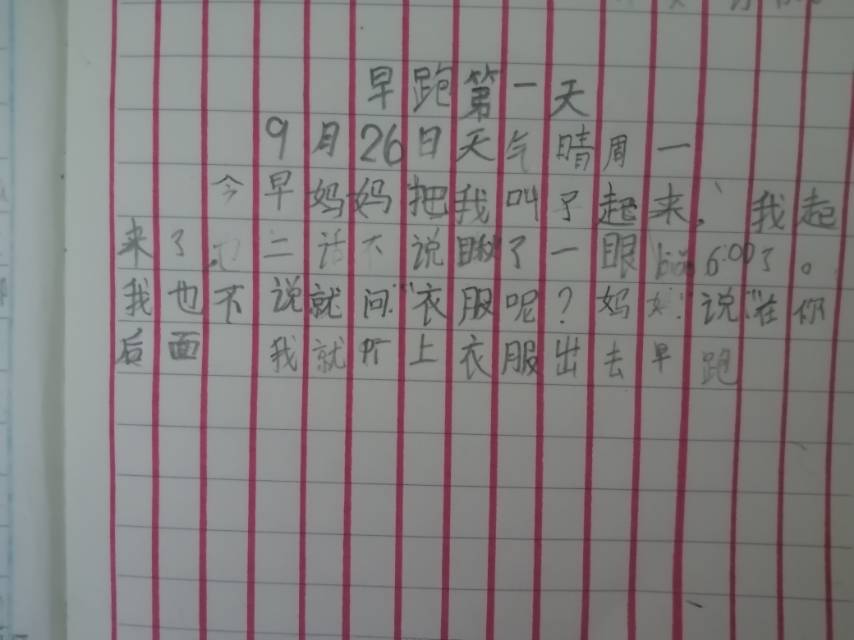 早跑第一天
9月26日天气晴周一
今早妈妈把我叫了起来，我起
来了，二话不说瞅了一眼6:00了。
我也不说就问:"衣服呢？妈妈:说"在你
后面 我就 上衣服出去早跑